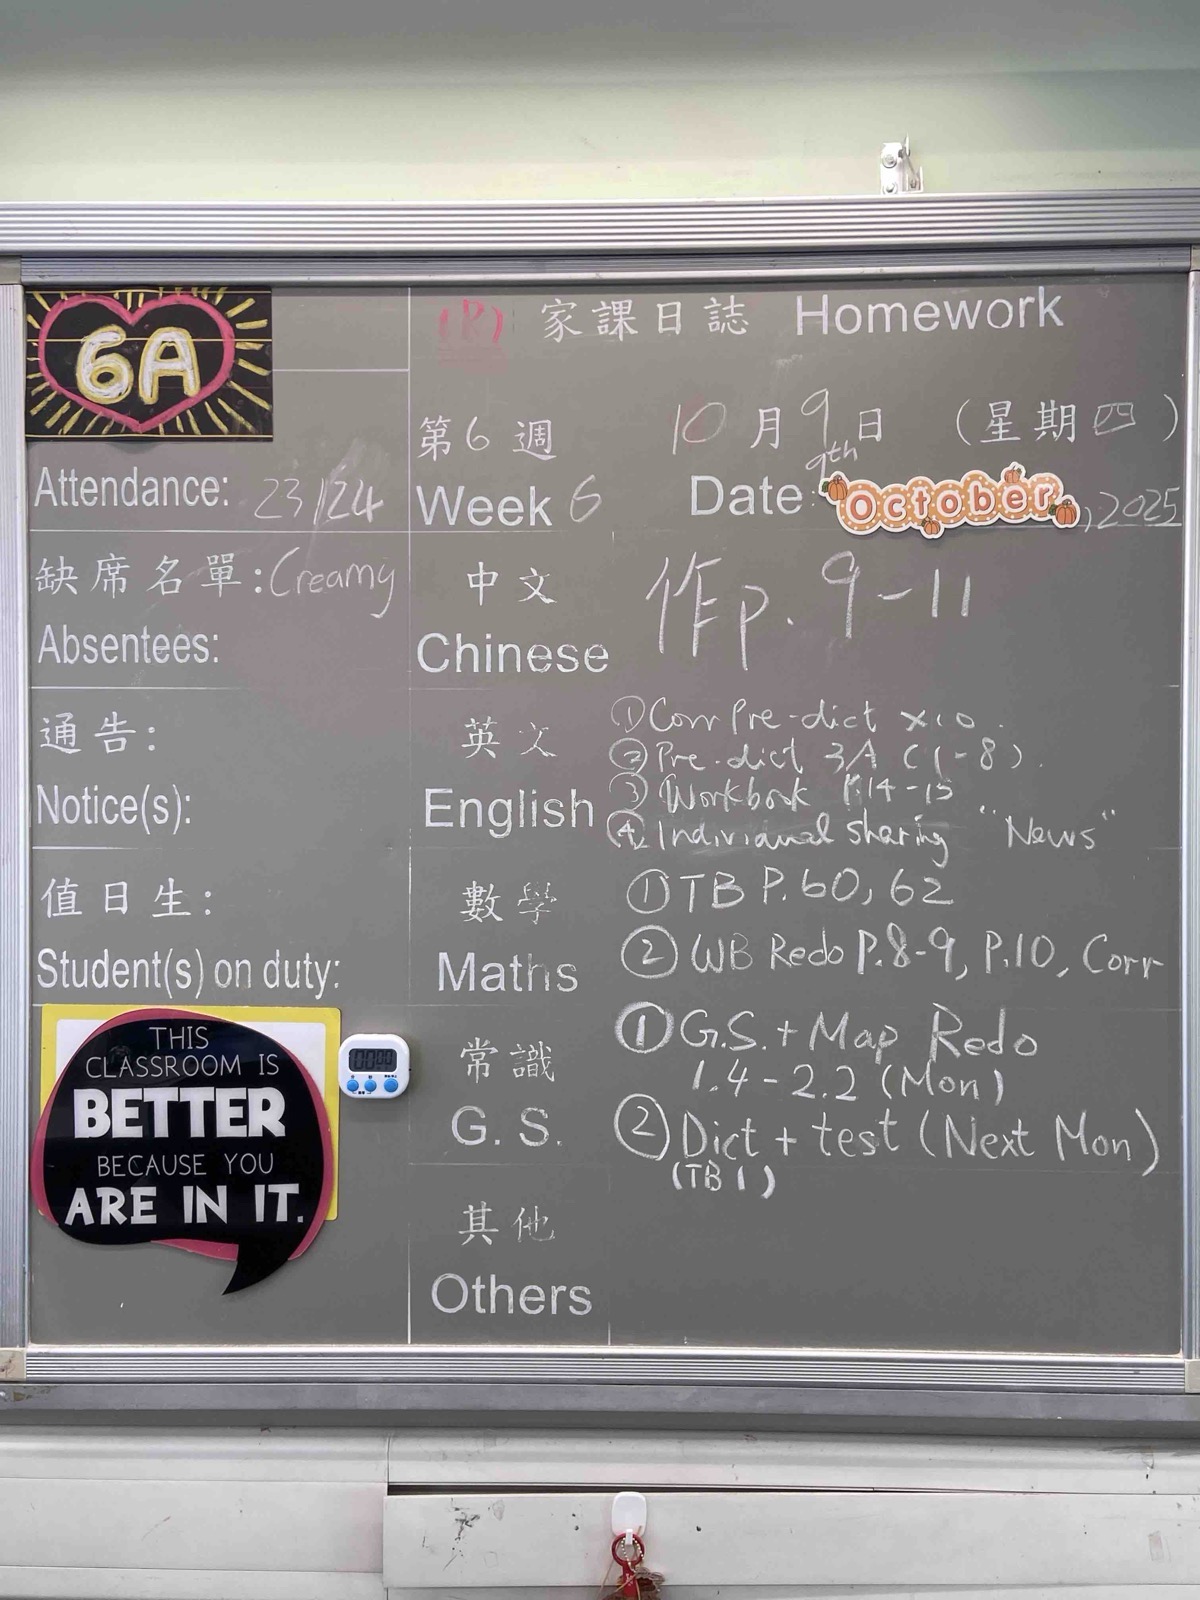 6A
(R) 家課日誌 Homework
第6週 10月9日 (星期四)
Week 6 Date: 9th October, 2025
Attendance: 23/24
缺席名單: Creamy
Absentees:
通告:
Notice(s):
值日生:
Student(s) on duty:
THIS
CLASSROOM IS
BETTER
BECAUSE YOU
ARE IN IT.
中文
Chinese
作p. 9-11
英文
English
①Corr Pre-dict x10.
②Pre-dict 3A (1-8).
③Workbook P.14-15
④Individual sharing "News"
數學
Maths
①TB P.60, 62
②WB Redo P.8-9, P.10, Corr
常識
G. S.
①G.S.+Map Redo
1.4-2.2 (Mon)
②Dict + test (Next Mon)
(TB 1)
其他
Others